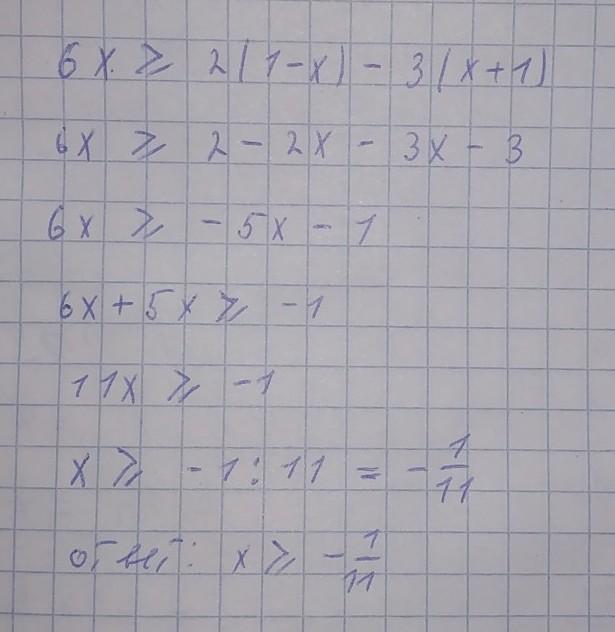 6x ≥ 2(1-x) - 3(x+1)
6x ≥ 2 - 2x - 3x - 3
6x ≥ -5x - 1
6x + 5x ≥ -1
11x ≥ -1
x ≥ -1 : 11 = -1/11
ответ: x ≥ -1/11